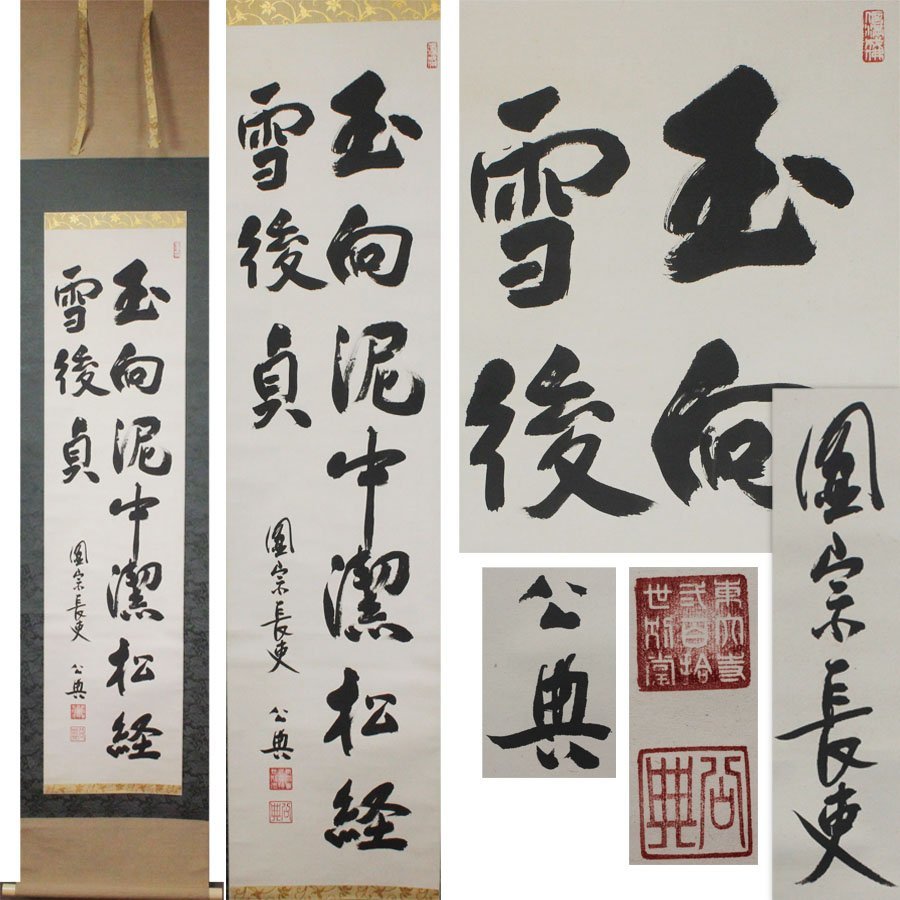 玉向泥中潔松経
雪後貞
圓宗長吏 公典
玉向泥中潔松経
雪後貞
圓宗長吏 公典
玉向
雪後
公典
東大寺
弐百拾
世別當
公典
圓宗長吏